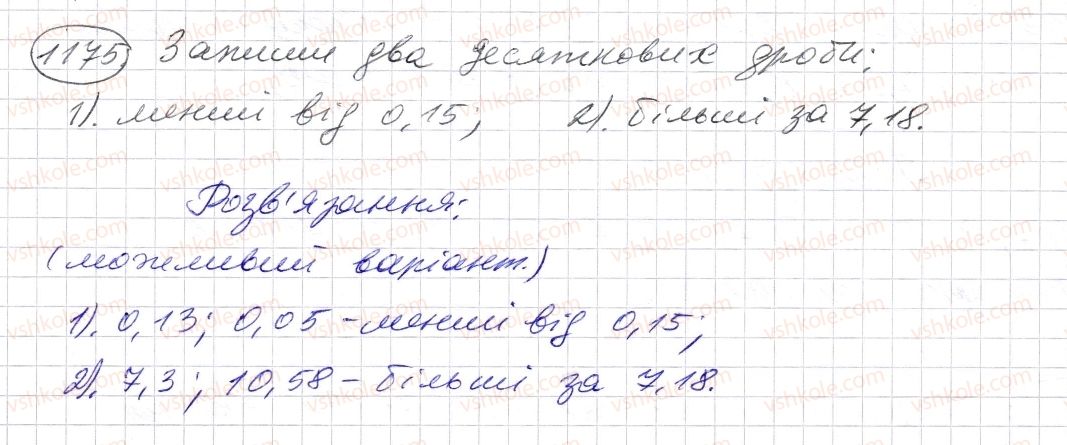 1175. Запиши два десяткових дроби:
1). менші від 0,15; 2). більші за 7,18.
Розв'язання:
(можливий варіант.)
1). 0,13; 0,05 – менші від 0,15;
2). 7,3; 10,58 – більші за 7,18.